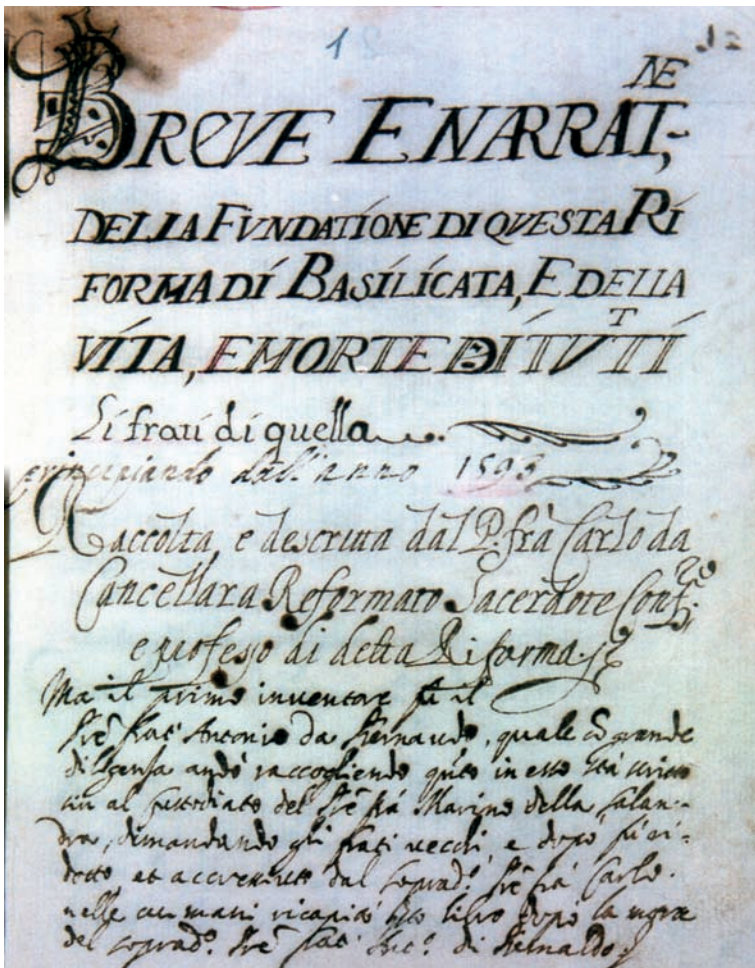 12
NE
BREVE ENARRAT.
DELLA FVNDATIONE DI QVESTA RI
FORMA DI BASILICATA, E DELLA
VITA, E MORTE DI TVTTI
Li frati di quella
principiando dall'anno 1593
Raccolta, e descritta dal P. frà Carlo da
Cancellara Reformato Sacerdote Conf.re
e professo di detta Riforma.
Ma il primo inventore fù il
Pre frat' Antonio da, quale cō grande
diligenza andò raccogliendo in esso stà scritto
sin al custodiato del Pre frà Marino della Salan-
dra, dimandando gli frati vecchi e dopò
et accresciuto dal soprad.o Pre frà Carlo.
nelle cui mani libro dopò la morte
del soprad.o Pre frat' Ant.o di